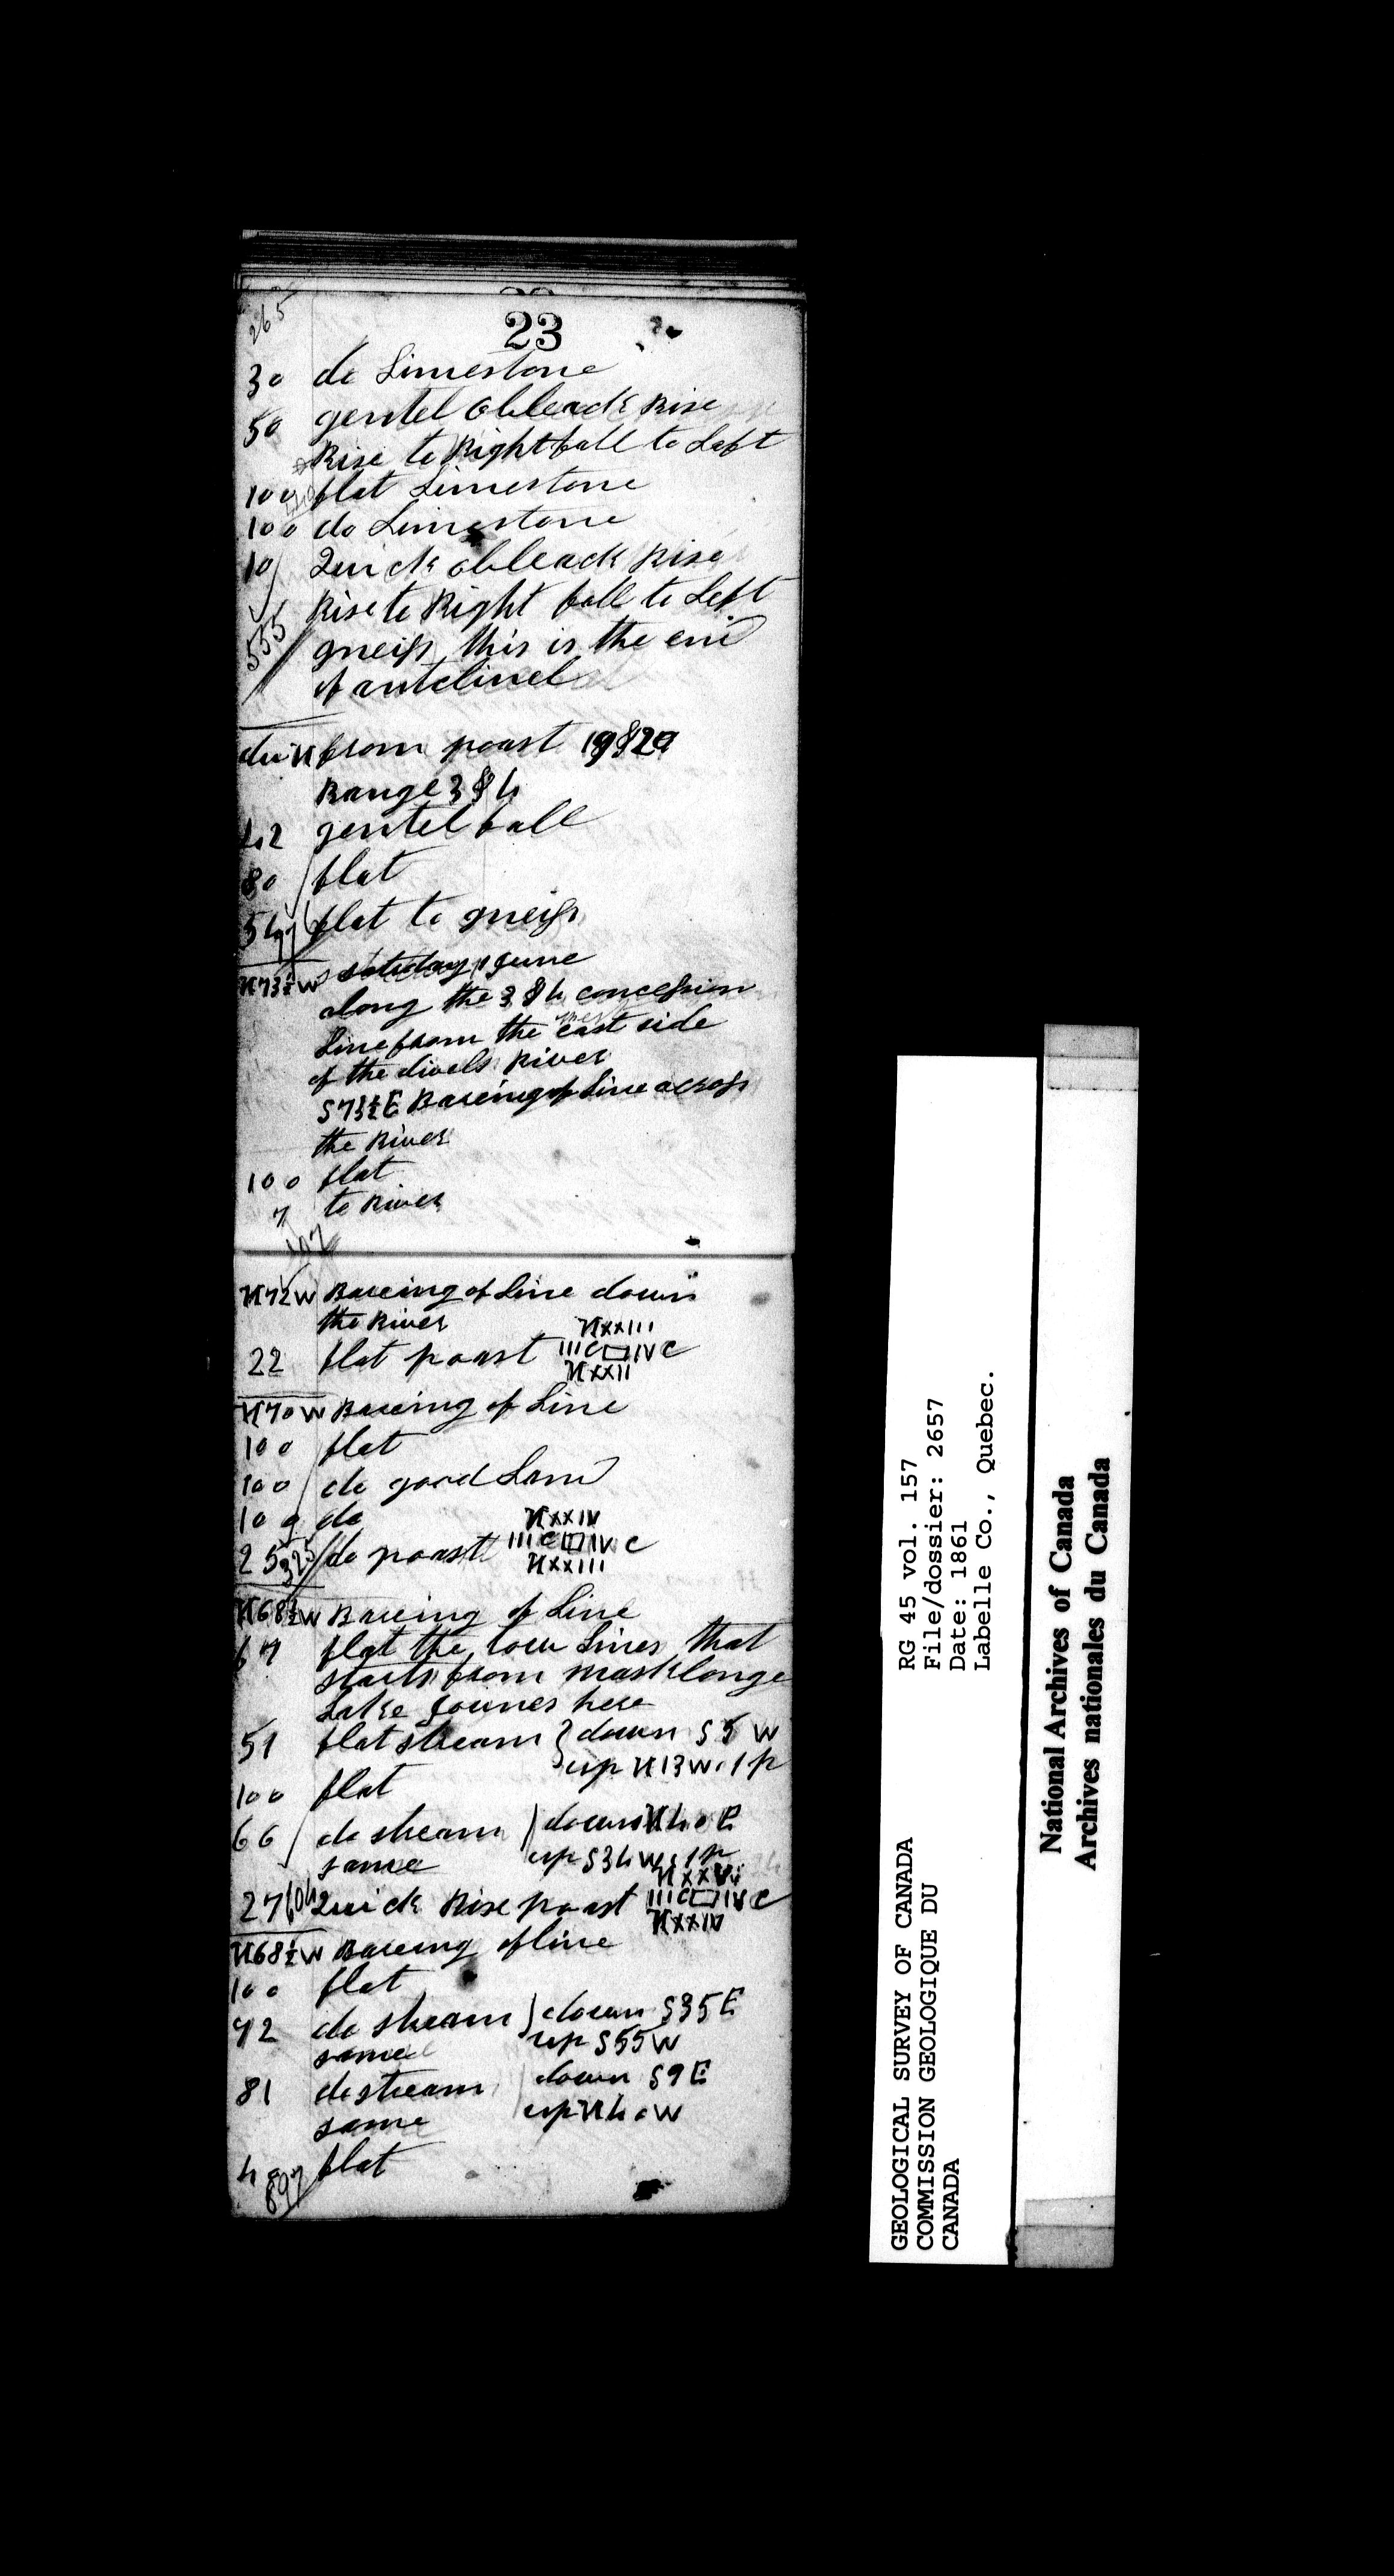 265
23
30 do Limestone
50 gentel obleack Rise
Rise to Right fall to Left
100 flat Limestone
100 do Limestone
10 Quick obleack Rise
Rise to Right fall to Left
555 gneiss this is the end
of anteclinel
due N from poast 19 & 20
Range 3 & 4
42 gentel fall
80 flat
54 flat to gneiss
saturday 1 June
N73½W along the 3 & 4 concession
west
Line from the east side
of the divels River
S73½E Bareing of Line across
the River
100 flat
7 to River
107
N72W Bareing of Line down
the River
NXXIII
22 flat poast IIIC □ IVC
NXXII
N70W Bareing of Line
100 flat
100 do good Land
100 do
NXXIV
25 325 do poast IIIC □ IVC
NXXIII
N68½W Bareing of Line
67 flat the tow Lines that
starts from masklonge
Lake Joines here
51 flat stream } down S5W
up N13W . 1 p
100 flat
66 do stream ) down N40E
same up S34W . 1 p
NXXV
27 Quick Rise poast IIIC □ IVC
NXXIV
N68½W Bareing of line
100 flat
72 do stream ) down S35E
same up S55W
81 do stream ) down S9E
same up N40W
flat
897
RG 45 vol. 157
File/dossier: 2657
Date: 1861
Labelle Co., Quebec.
GEOLOGICAL SURVEY OF CANADA
COMMISSION GEOLOGIQUE DU
CANADA
National Archives of Canada
Archives nationales du Canada